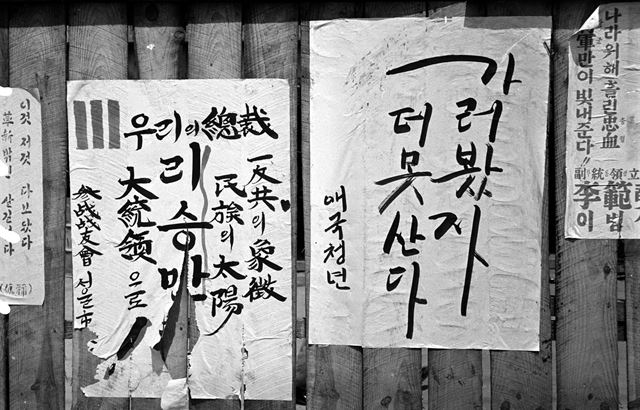 나라위해 흘린 忠血
만이 빛내준다!!
副統領立
李範
이범
가러봤자
더못산다
애국청년
우리의 總裁
反共의 象徵
民族의 太陽
리승만
大統領으로
戰友會 서울市
이것 저것 다 보았다
革新밖엔 살길 다